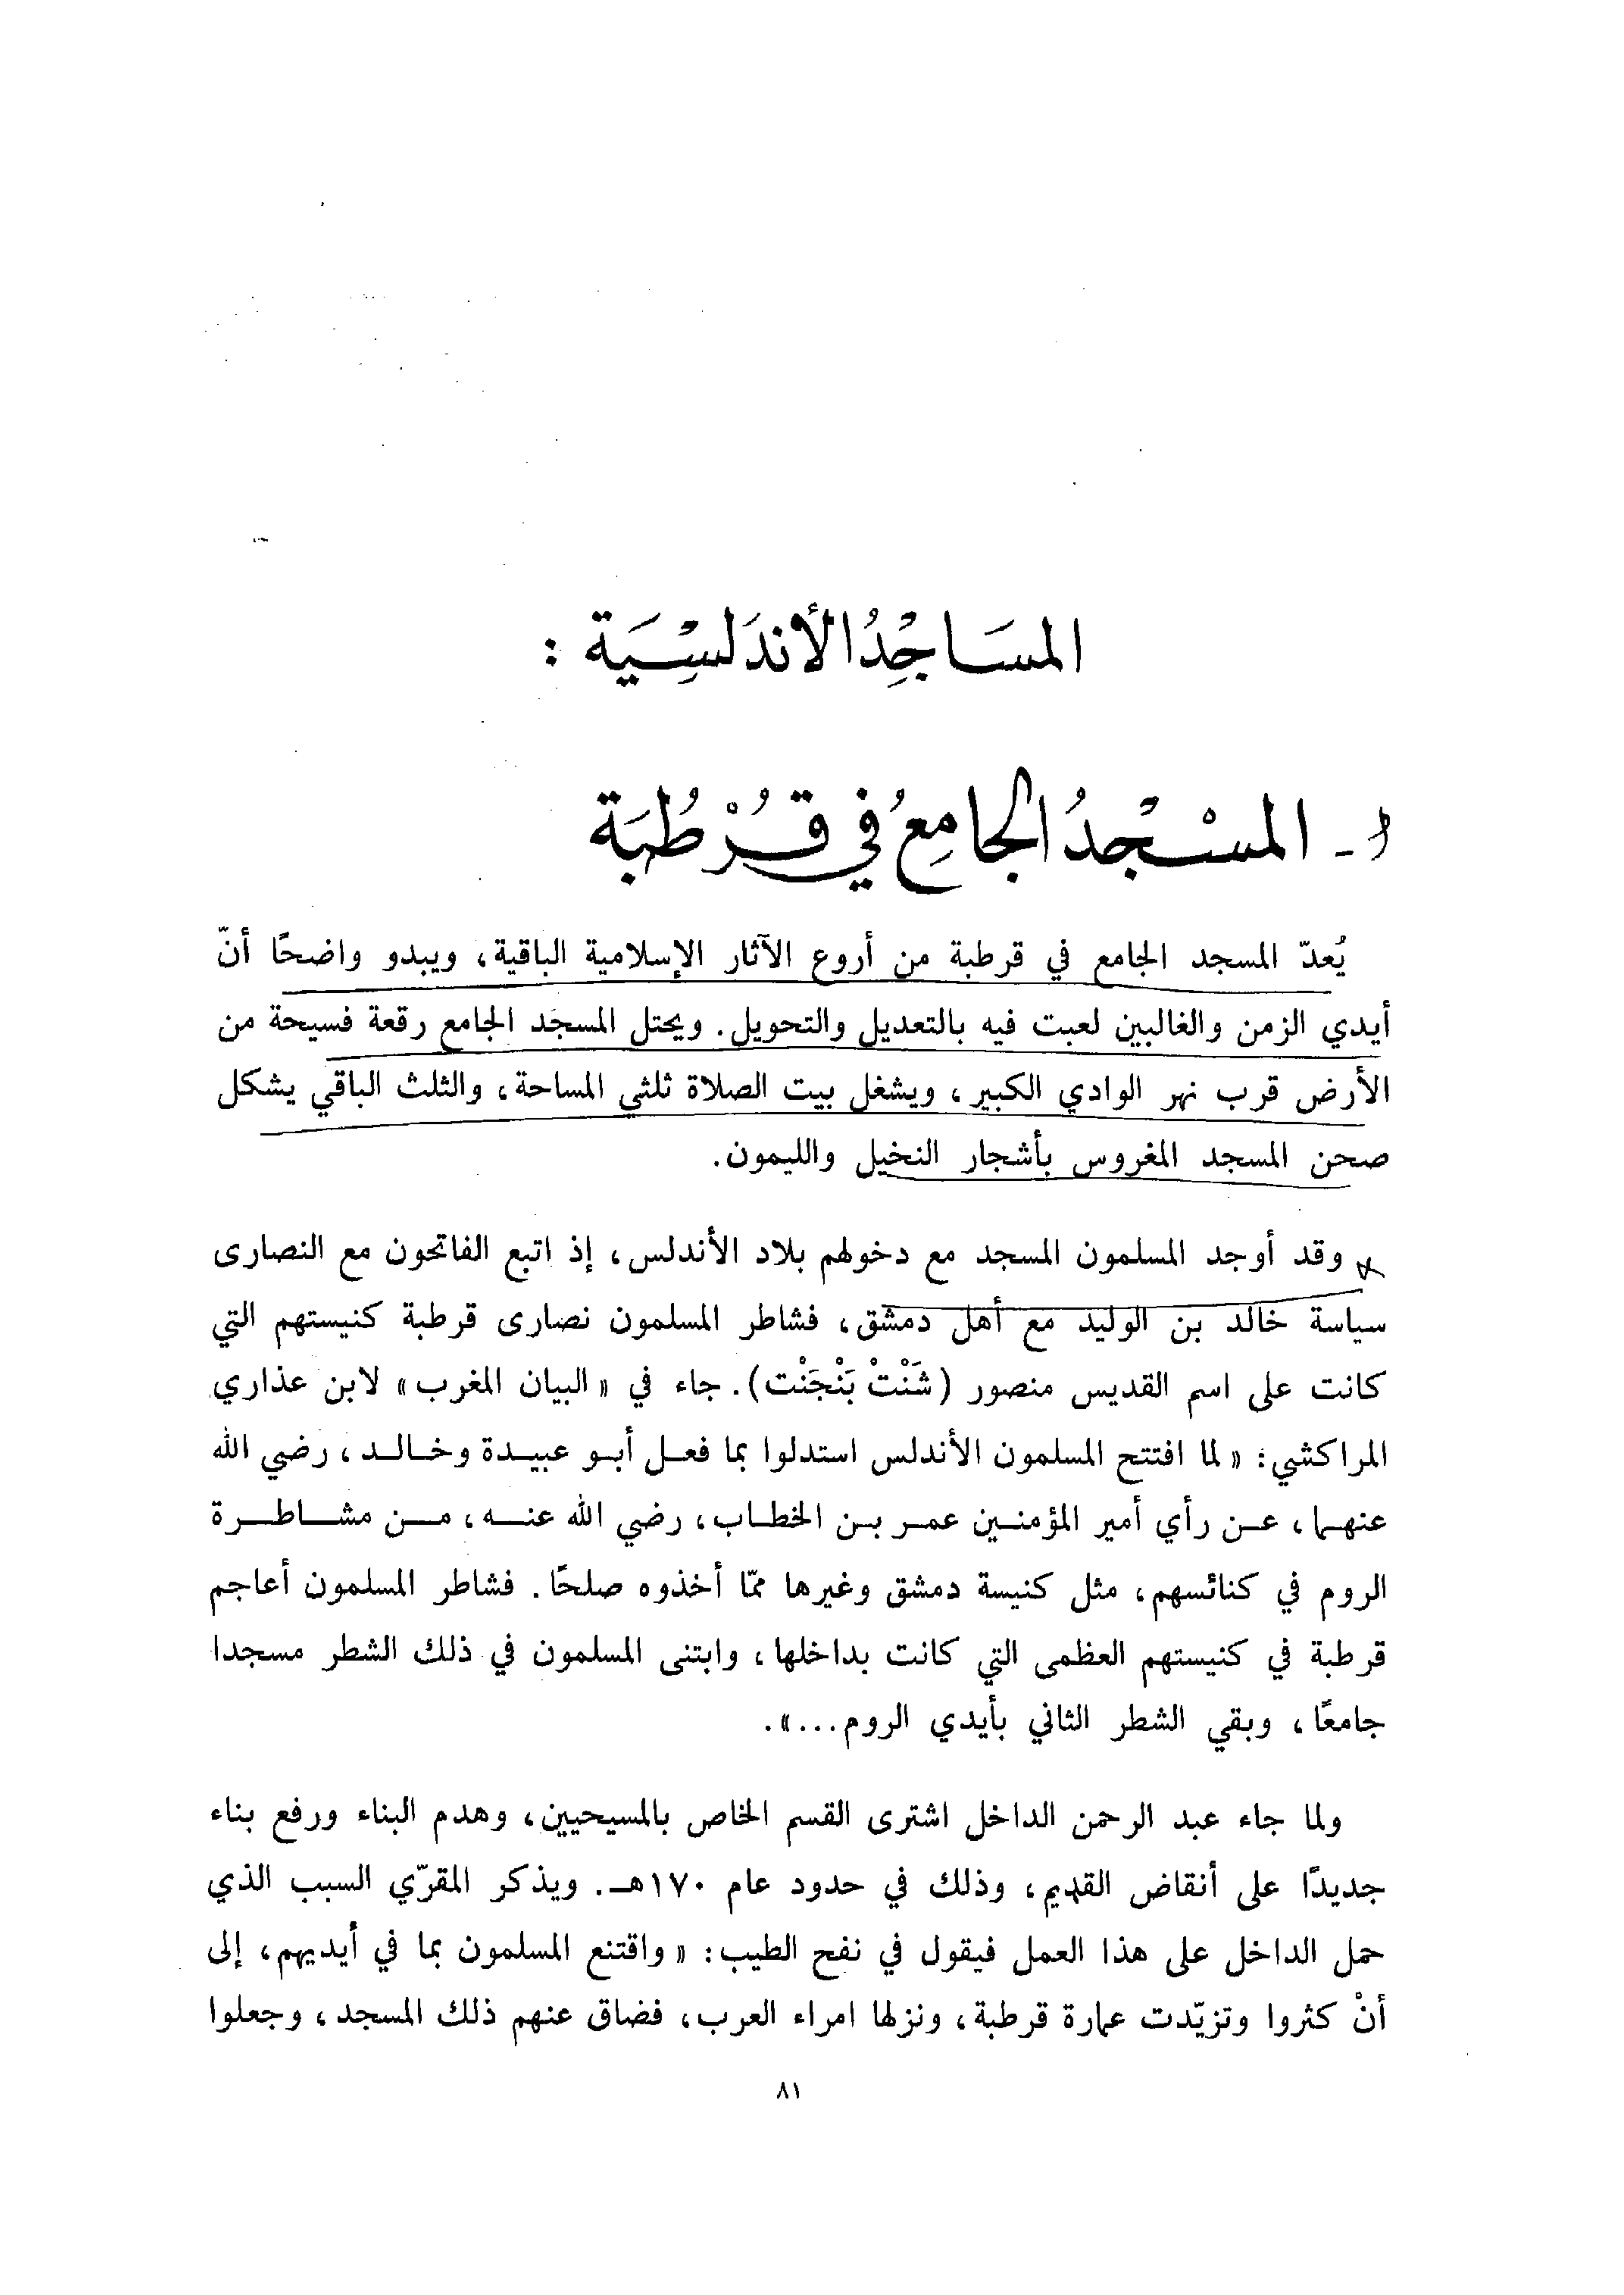 المسَاجِدُ الأندَلسِيَة :
أ - المسْجدُ الجامِعُ في قُرْطُبَة
يُعدّ المسجد الجامع في قرطبة من أروع الآثار الإسلامية الباقية، ويبدو واضحًا أنّ
أيدي الزمن والغالبين لعبت فيه بالتعديل والتحويل. ويحتل المسجد الجامع رقعة فسيحة من
الأرض قرب نهر الوادي الكبير، ويشغل بيت الصلاة ثلثي المساحة، والثلث الباقي يشكل
صحن المسجد المغروس بأشجار النخيل والليمون.
وقد أوجد المسلمون المسجد مع دخولهم بلاد الأندلس، إذ اتبع الفاتحون مع النصارى
سياسة خالد بن الوليد مع أهل دمشق، فشاطر المسلمون نصارى قرطبة كنيستهم التي
كانت على اسم القديس منصور (شَنْتْ بَنْجَنْت). جاء في «البيان المغرب» لابن عذاري
المراكشي: «لما افتتح المسلمون الأندلس استدلوا بما فعل أبو عبيدة وخالد، رضي الله
عنهما، عن رأي أمير المؤمنين عمر بن الخطاب، رضي الله عنه، من مشاطرة
الروم في كنائسهم، مثل كنيسة دمشق وغيرها ممّا أخذوه صلحًا. فشاطر المسلمون أعاجم
قرطبة في كنيستهم العظمى التي كانت بداخلها، وابتنى المسلمون في ذلك الشطر مسجدا
جامعًا، وبقي الشطر الثاني بأيدي الروم...».
ولما جاء عبد الرحمن الداخل اشترى القسم الخاص بالمسيحيين، وهدم البناء ورفع بناء
جديدًا على أنقاض القديم، وذلك في حدود عام ١٧٠هـ. ويذكر المقرّي السبب الذي
حمل الداخل على هذا العمل فيقول في نفح الطيب: «واقتنع المسلمون بما في أيديهم، إلى
أنْ كثروا وتزيّدت عمارة قرطبة، ونزلها امراء العرب، فضاق عنهم ذلك المسجد، وجعلوا
٨١